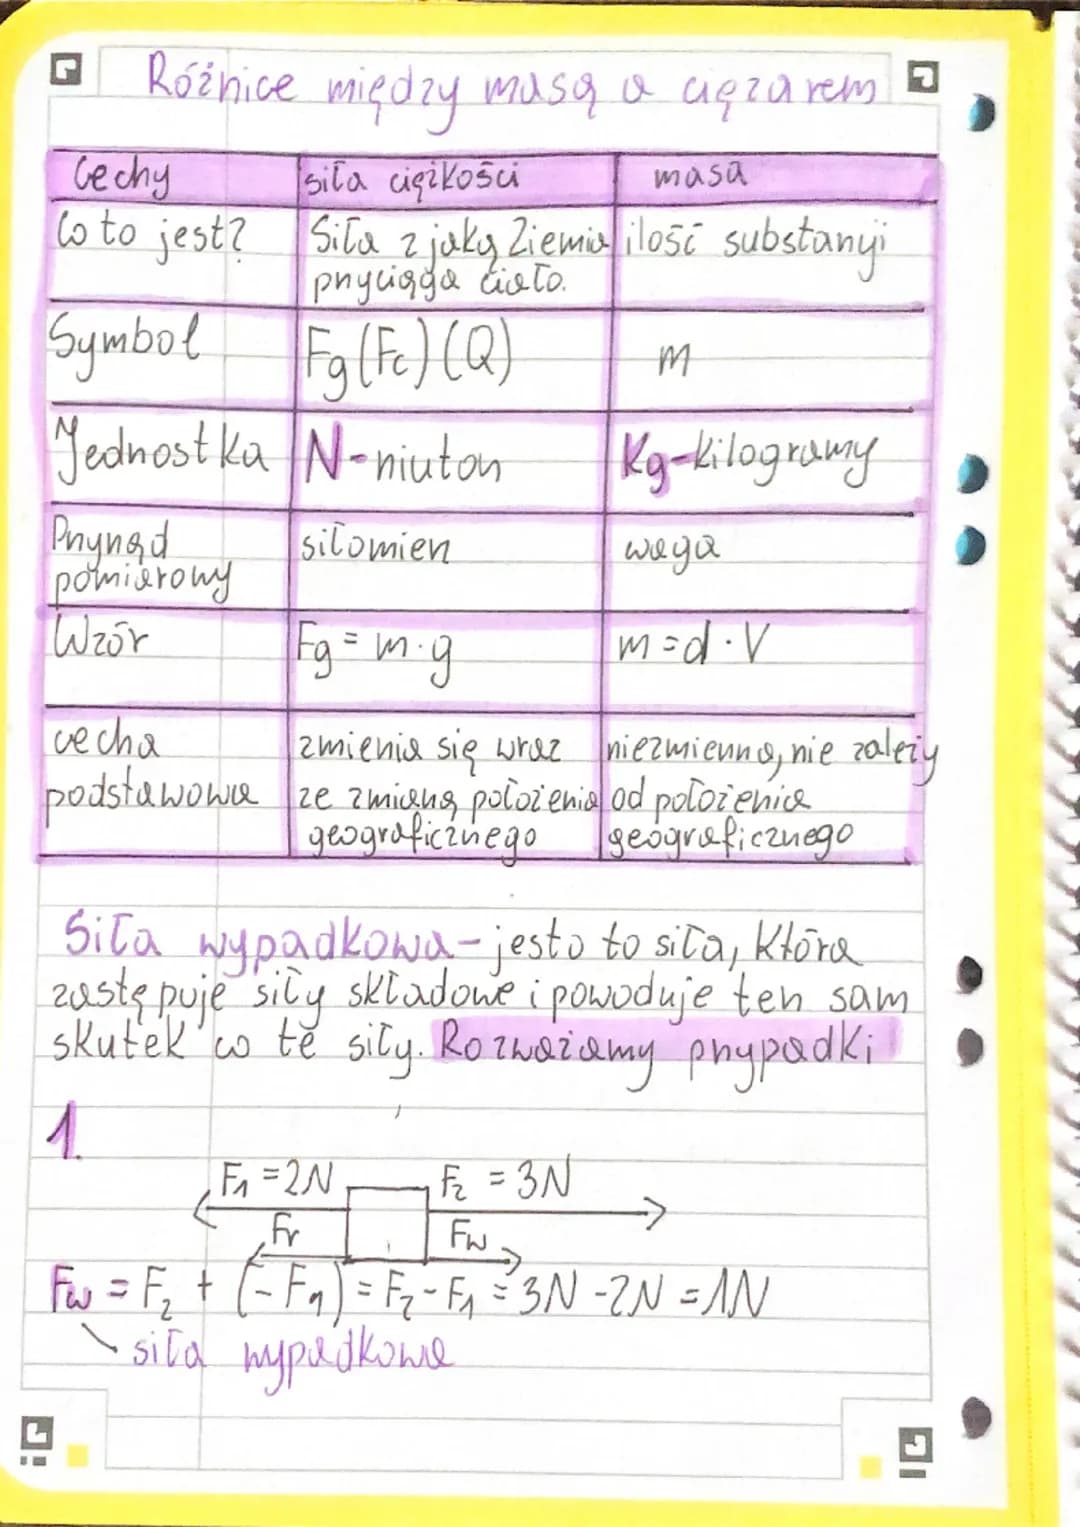 Różnice między masą a ciężarem
Cechy siła ciężkości masa
Co to jest? Siła z jaką Ziemia ilość substanyi
przyciąga ciało.
Symbol Fg (Fc) (Q) m
Jednostka N-niuton Kg-kilogramy
Przyrząd siłomierz waga
pomiarowy
Wzór Fg = m·g m=d·V
cecha zmienia się wraz niezmienna, nie zależy
podstawowa ze zmianą położenia od położenia
geograficznego geograficznego
Siła wypadkowa-jesto to siła, która
zastępuje siły składowe i powoduje ten sam
skutek co te siły. Rozważamy przypadki
1.
F₁ =2N F₂ = 3N
Fr Fw
Fw = F₂ + (-F₁) = F₂-F₁ = 3N -2N =1N
siła wypadkowa